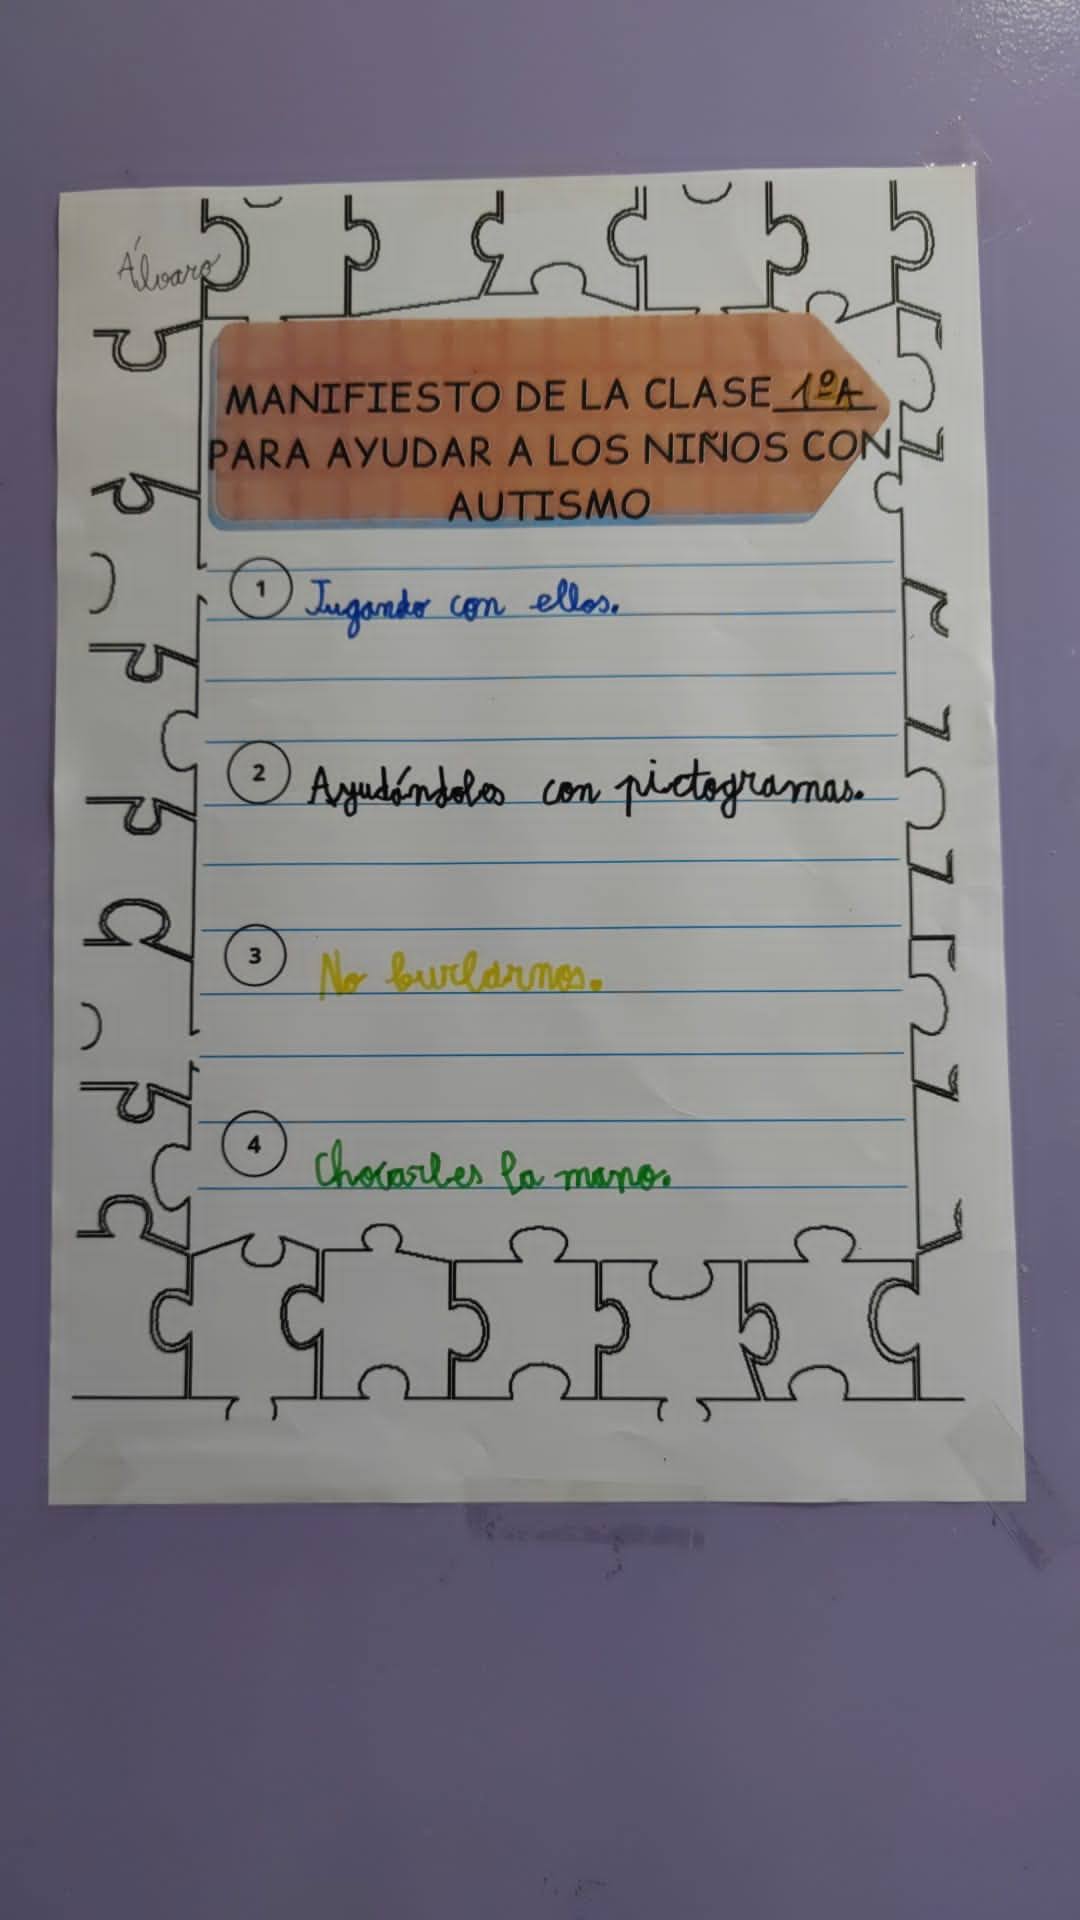 Álvaro
MANIFIESTO DE LA CLASE 1ºA
PARA AYUDAR A LOS NIÑOS CON
AUTISMO
1 Jugando con ellos.
2 Ayudándoles con pictogramas.
3 No burlarnos.
4 Chocarles la mano.